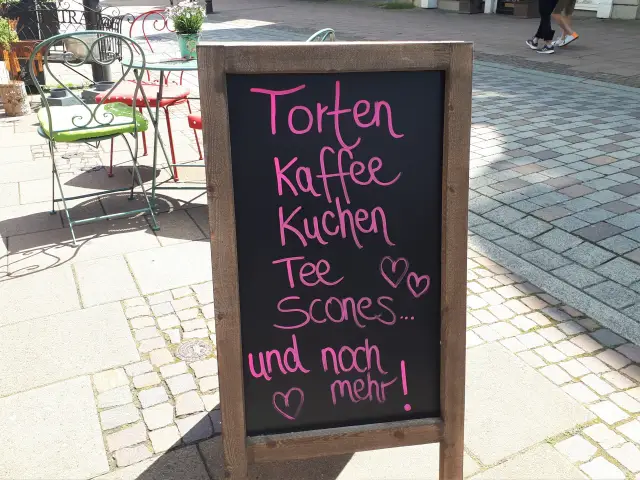 Torten
Kaffee
Kuchen
Tee
Scones...
und noch
mehr!